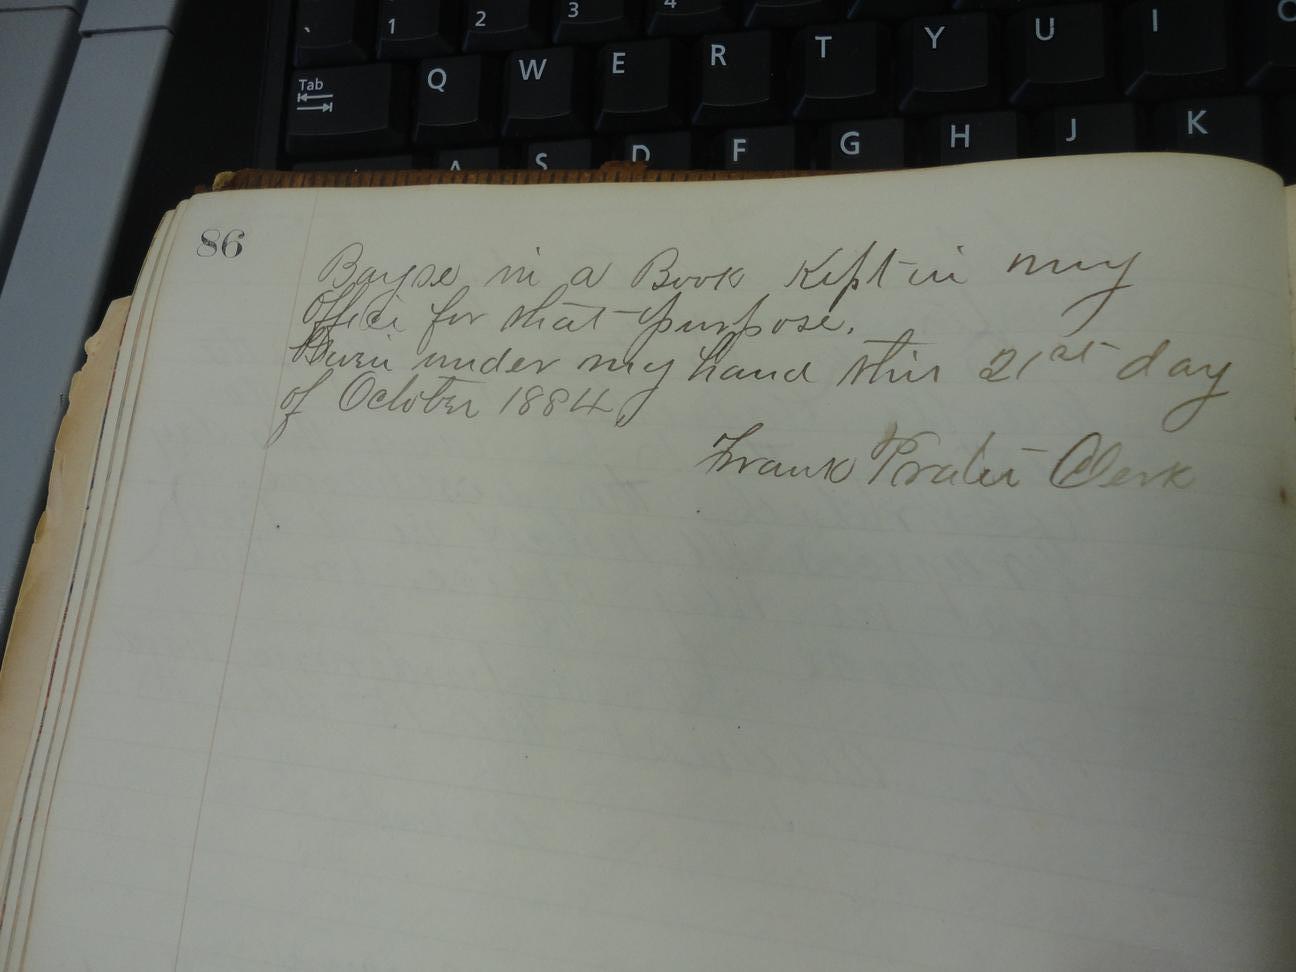 ` 1 2 3 4
Tab Q W E R T Y U I O
A S D F G H J K
86
Bayse in a Book Kept in my
office for that purpose.
Given under my hand this 21st day
of October 1884,
Frank Prater Clerk